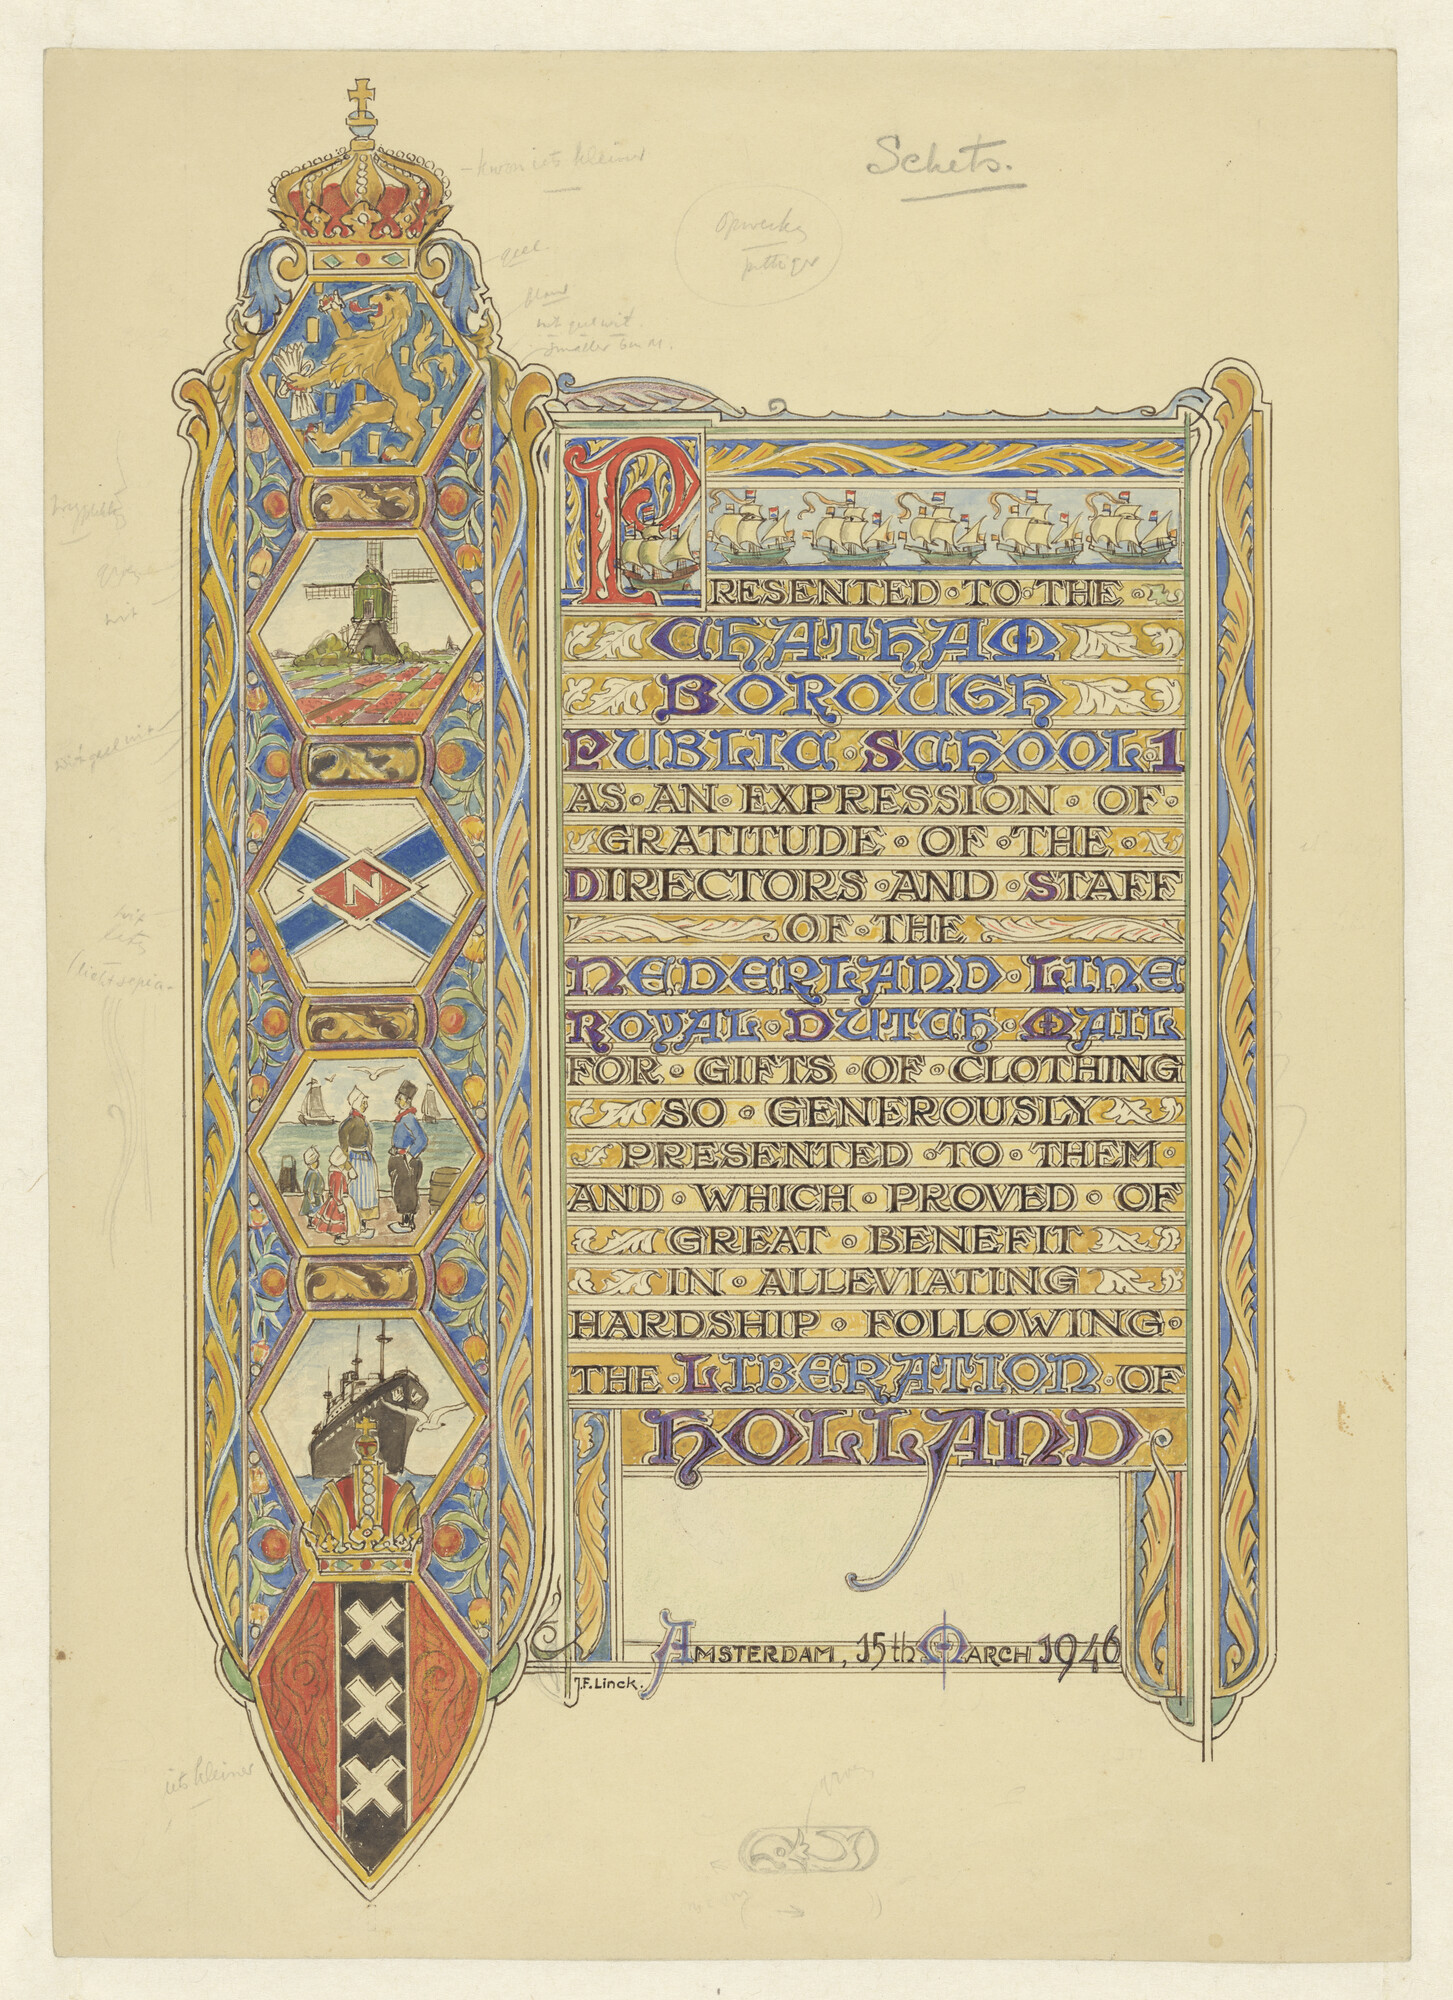 Schets.
kroon iets kleiner
geel.
blauw
PRESENTED TO THE
CHATHAM
BOROUGH
PUBLIC SCHOOL 1
AS AN EXPRESSION OF
GRATITUDE OF THE
DIRECTORS AND STAFF
OF THE
NEDERLAND LINE
ROYAL DUTCH MAIL
FOR GIFTS OF CLOTHING
SO GENEROUSLY
PRESENTED TO THEM
AND WHICH PROVED OF
GREAT BENEFIT
IN ALLEVIATING
HARDSHIP FOLLOWING
THE LIBERATION OF
HOLLAND
AMSTERDAM, 15th MARCH 1946
J.F. Linck.
N
wit
iets kleiner